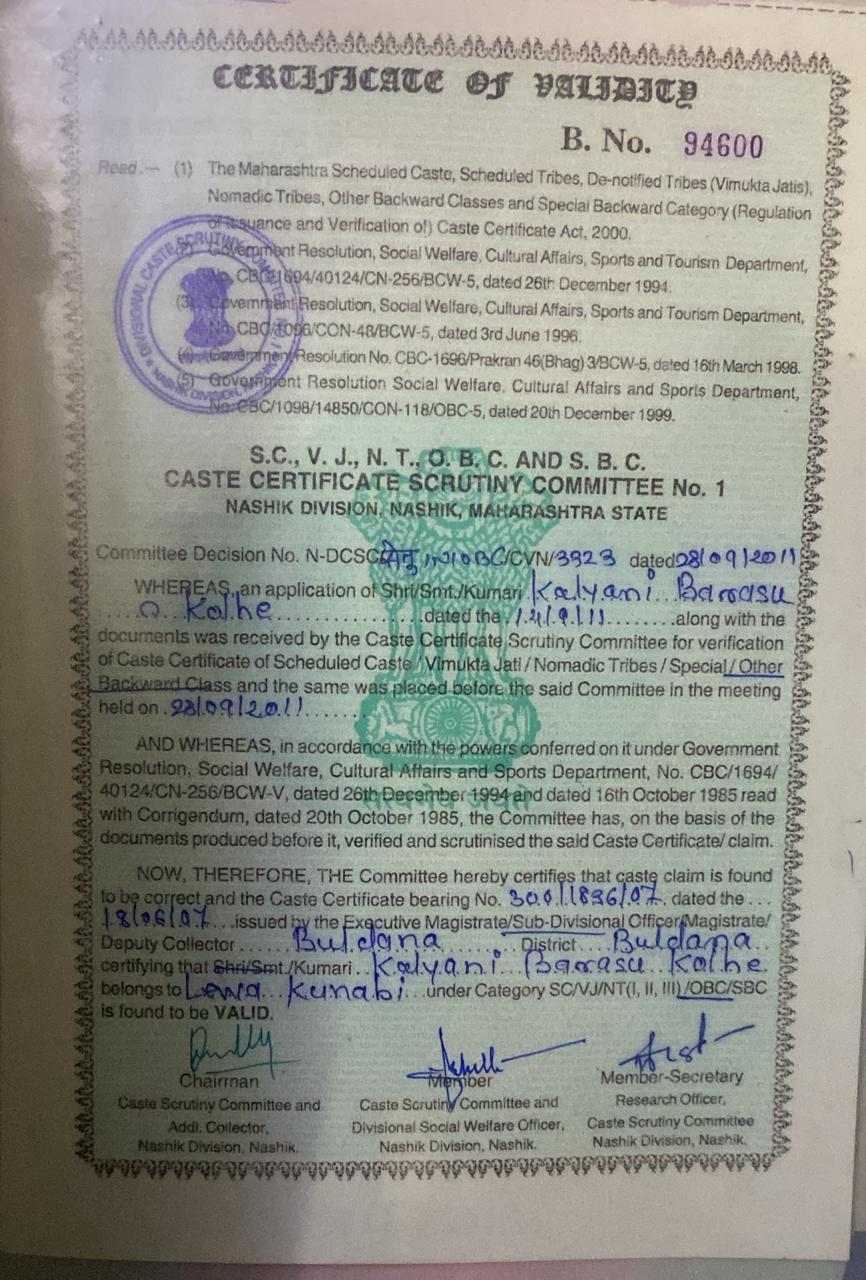 CERTIFICATE OF VALIDITY
B. No. 94600
Read.— (1) The Maharashtra Scheduled Caste, Scheduled Tribes, De-notified Tribes (Vimukta Jatis),
Nomadic Tribes, Other Backward Classes and Special Backward Category (Regulation
of Issuance and Verification of) Caste Certificate Act, 2000.
(2) Government Resolution, Social Welfare, Cultural Affairs, Sports and Tourism Department,
No. CBC-1694/40124/CN-256/BCW-5, dated 26th December 1994.
(3) Government Resolution, Social Welfare, Cultural Affairs, Sports and Tourism Department,
No. CBC/1096/CON-48/BCW-5, dated 3rd June 1996.
(4) Government Resolution No. CBC-1696/Prakran 46(Bhag) 3/BCW-5, dated 16th March 1998.
(5) Government Resolution Social Welfare, Cultural Affairs and Sports Department,
No. CBC/1098/14850/CON-118/OBC-5, dated 20th December 1999.
DIVISIONAL CASTE SCRUTINY COMMITTEE
NASHIK DIVISION, NASHIK
S.C., V. J., N. T., O. B. C. AND S. B. C.
CASTE CERTIFICATE SCRUTINY COMMITTEE No. 1
NASHIK DIVISION, NASHIK, MAHARASHTRA STATE
Committee Decision No. N-DCSC /OBC/CVN/3923 dated 28/09/2011
WHEREAS, an application of Shri/Smt./Kumari Kalyani Barasu
Kolhe dated the along with the
documents was received by the Caste Certificate Scrutiny Committee for verification
of Caste Certificate of Scheduled Caste / Vimukta Jati / Nomadic Tribes / Special / Other
Backward Class and the same was placed before the said Committee in the meeting
held on 28/09/2011
AND WHEREAS, in accordance with the powers conferred on it under Government
Resolution, Social Welfare, Cultural Affairs and Sports Department, No. CBC/1694/
40124/CN-256/BCW-V, dated 26th December 1994 and dated 16th October 1985 read
with Corrigendum, dated 20th October 1985, the Committee has, on the basis of the
documents produced before it, verified and scrutinised the said Caste Certificate/ claim.
सत्यमेव जयते
NOW, THEREFORE, THE Committee hereby certifies that caste claim is found
to be correct and the Caste Certificate bearing No. dated the ...
18/06/07 issued by the Executive Magistrate/Sub-Divisional Officer/Magistrate/
Deputy Collector Buldana District Buldana
certifying that Shri/Smt./Kumari Kalyani Barasu Kolhe
belongs to Lewa Kunabi under Category SC/VJ/NT(I, II, III)/OBC/SBC
is found to be VALID.
Chairman Member Member-Secretary
Caste Scrutiny Committee and Caste Scrutiny Committee and Research Officer,
Addl. Collector, Divisional Social Welfare Officer, Caste Scrutiny Committee
Nashik Division, Nashik. Nashik Division, Nashik. Nashik Division, Nashik.